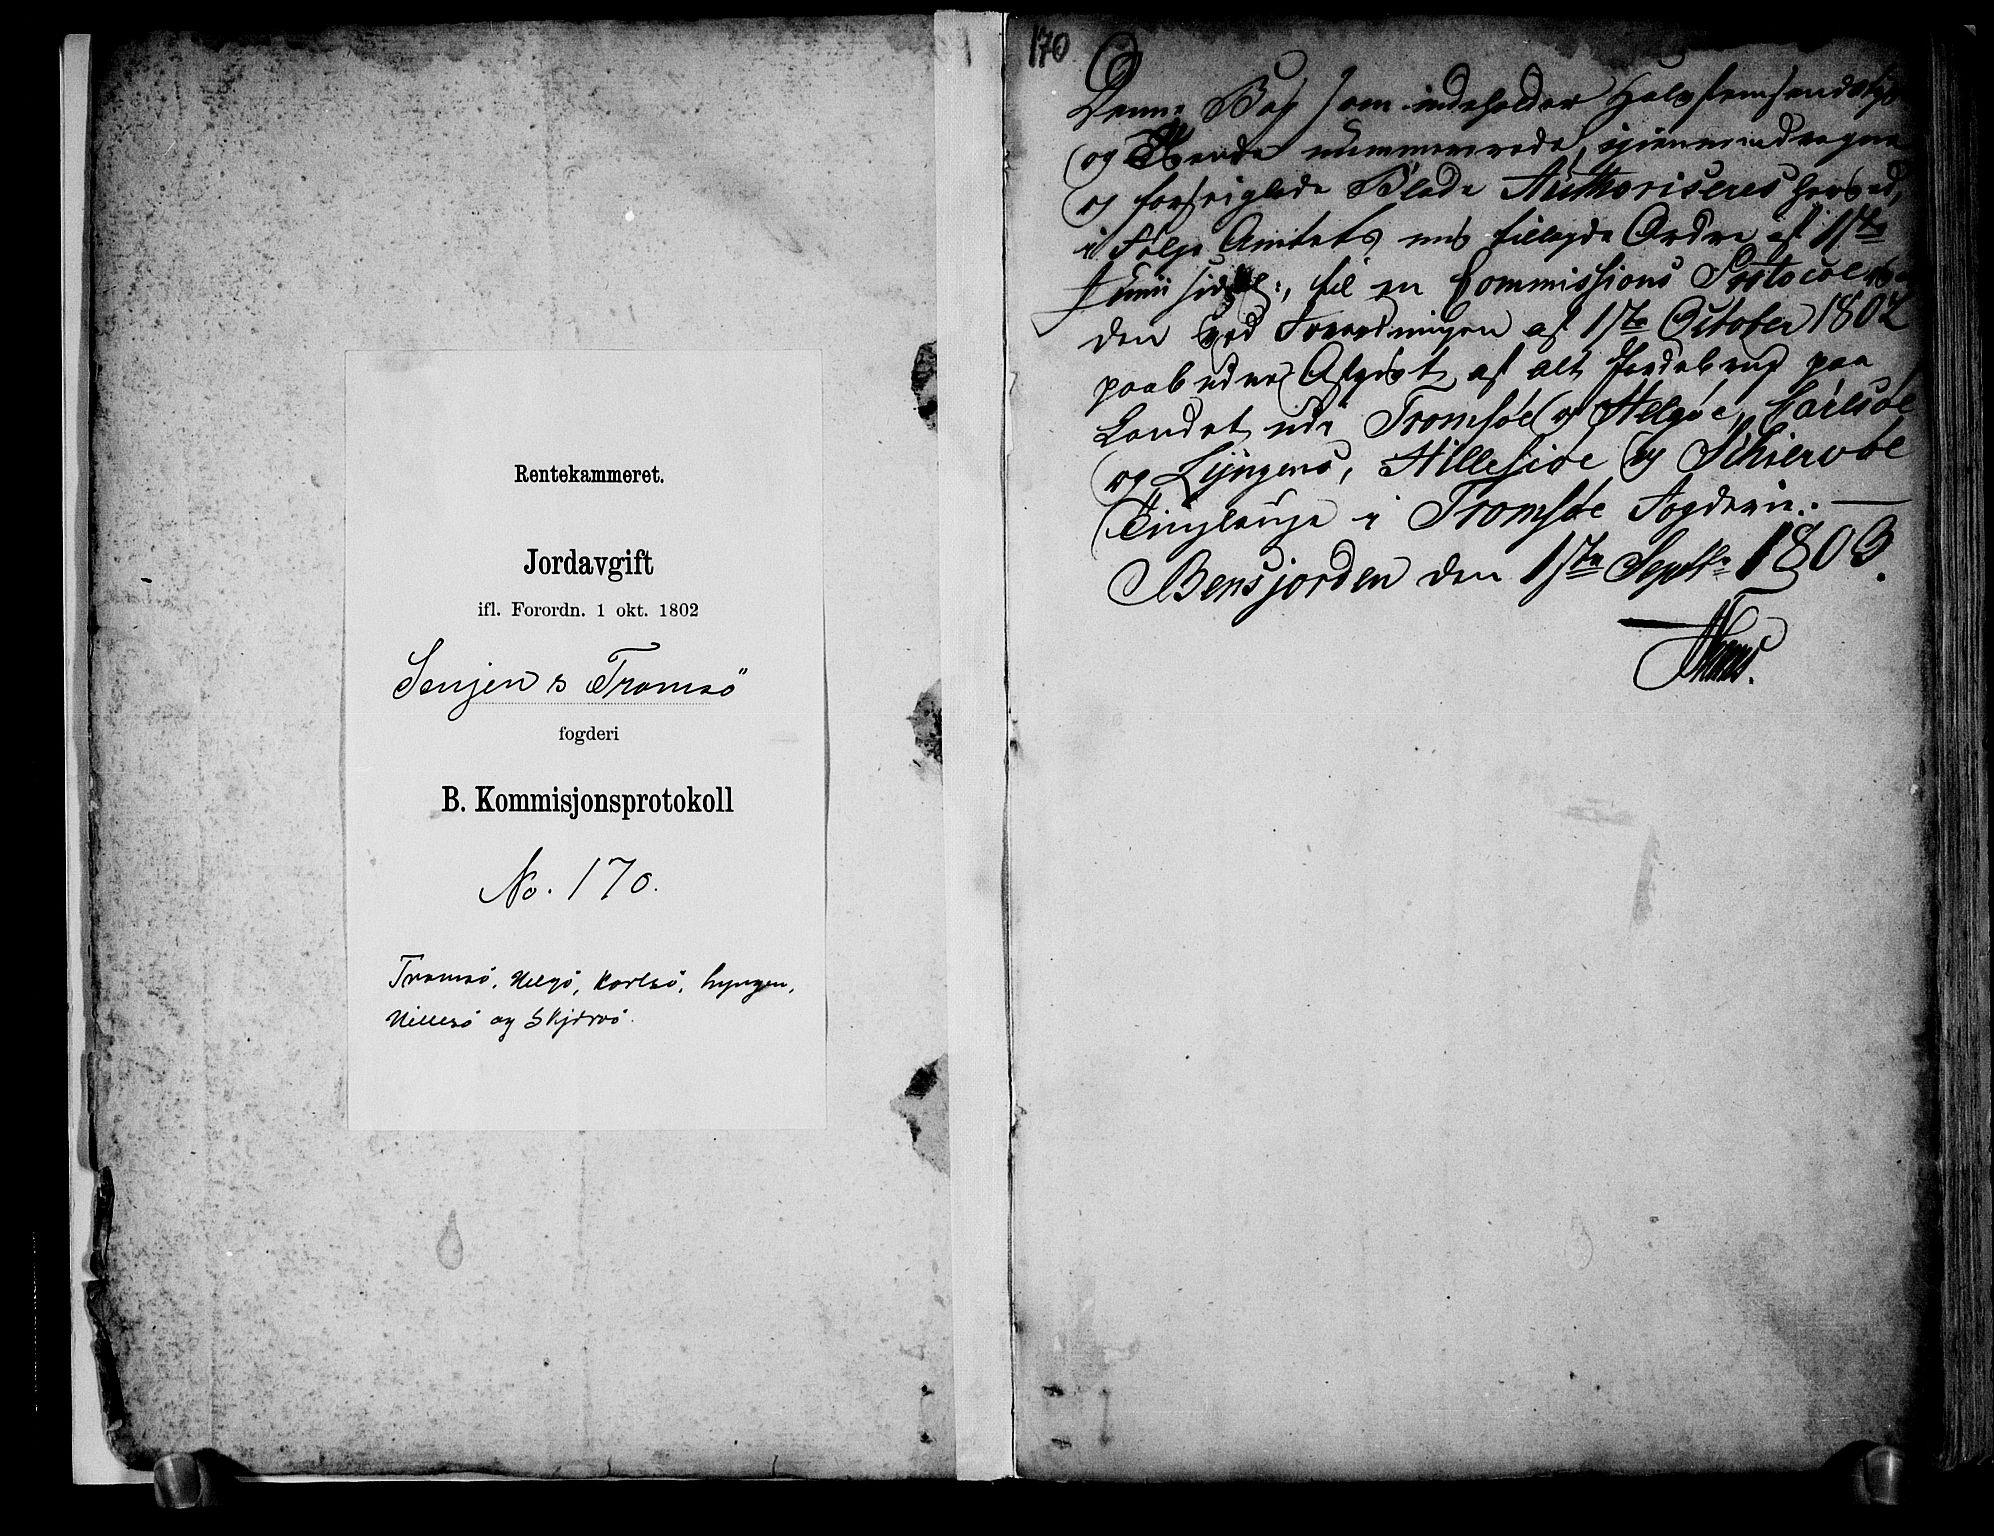 Rentekammeret.
Jordavgift
ifl. Forordn. 1 okt. 1802
Senjen & Tromsö
fogderi
B. Kommisjonsprotokoll
No. 170.
Tromsö, Helgö, Karlsö, Lyngen,
Hillesö og Skjervö.
170
Denne Bog som indeholder Halvfemsendstyve
og nummererede, igiennemdragne
og forseiglede Blade Authoriseres herved,
i Følge Amtets mig tillagde Ordre af 17de
Junii sidstl:, til en Commissions Protocol
den ved Forordningen af 1ste October 1802
paabudne Afgivt af alt Jordebrug paa
Landet udi Tromsøe og Helgøe, Carlsøe
og Lyngens, Hillesøe og Schiervøe
Tinglauge i Tromsøe Fogderie.
Bensjorden den 1ste Septbr 1803.